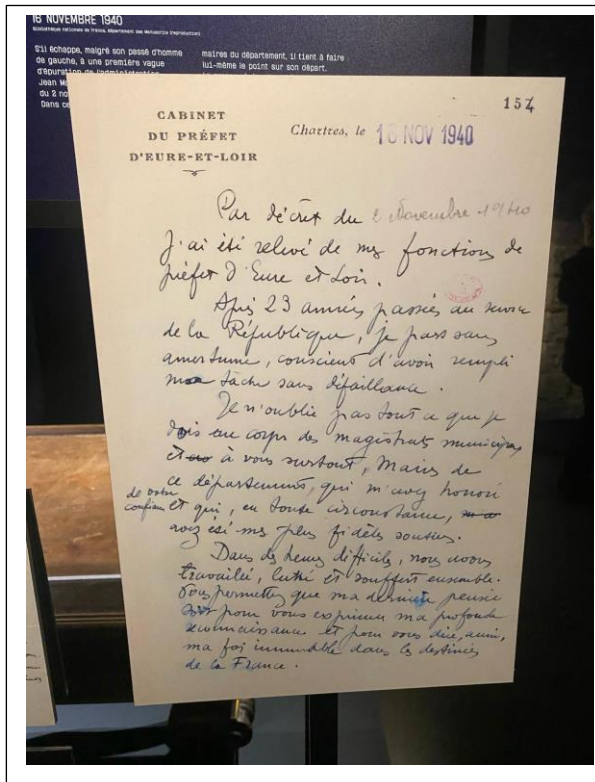 16 NOVEMBRE 1940
Bibliothèque nationale de France, département des Manuscrits (reproduction)
S'il échappe, malgré son passé d'homme
de gauche, à une première vague
d'épuration de l'administration
Jean Mo
du 2 no
Dans ce
maires du département, il tient à faire
lui-même le point sur son départ.
157
CABINET
DU PRÉFET
D'EURE-ET-LOIR
Chartres, le 16 NOV 1940
Par décret du 2 Novembre 1940
j'ai été relevé de mes fonctions de
préfet d'Eure et Loir.
Après 23 années passées au service
de la République, je pars sans
amertume, conscient d'avoir rempli
ma tâche sans défaillance.
Je n'oublie pas tout ce que je
dois au corps des magistrats municipaux
et au à vous surtout, Maires de
ce département, qui m'avez honoré
de votre
confiance et qui, en toute circonstance, m'a
avez été mes plus fidèles soutiens.
Dans des heures difficiles, nous avons
travaillé, lutté et souffert ensemble.
Vous permettez que ma dernière pensée
soit pour vous exprimer ma profonde
reconnaissance et pour vous dire, aussi,
ma foi immuable dans les destinées
de la France.